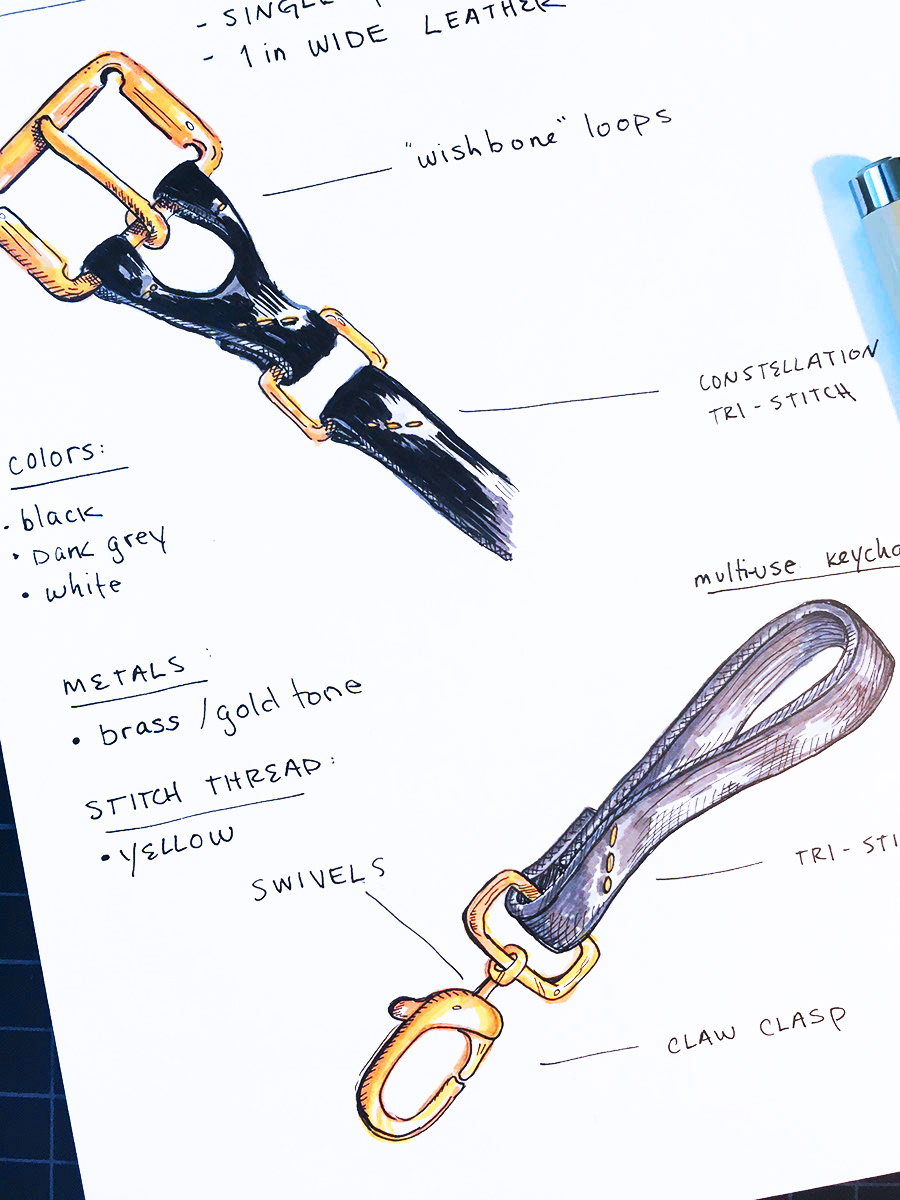 - SINGLE
- 1 in WIDE LEATHER
"wishbone" loops
CONSTELLATION
TRI-STITCH
colors:
· black
· Dark grey
· white
multi-use keycha
METALS:
· brass / gold tone
STITCH THREAD:
· YELLOW
SWIVELS
TRI-STI
CLAW CLASP